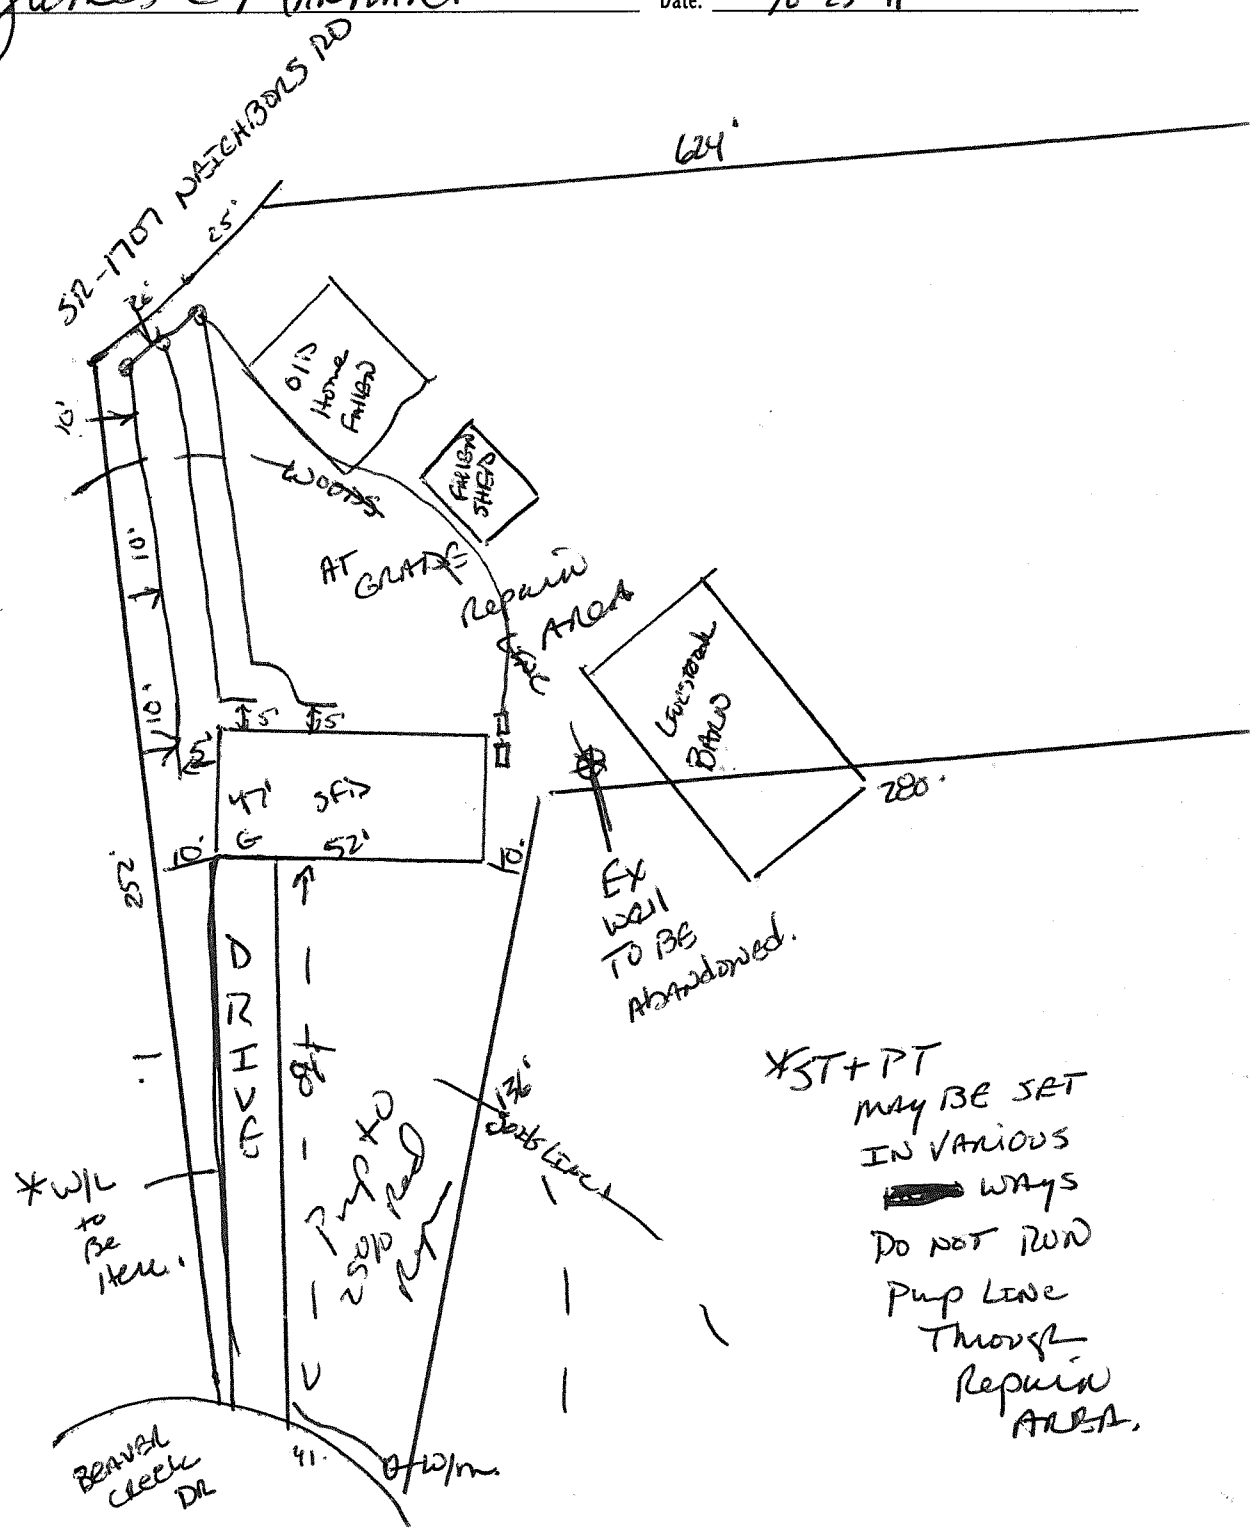 Date:
SR-1707 NAIGHBORS RD
624'
25'
10'
OlD
Home
FAllEN
FAllEN
SHED
WOODS
10'
AT
GRADE
Repair
AREA
LIVESTOCK
BARN
10'
5'
5'
5'
47'
SFD
G
52'
10'
10'
280'
252'
EX
Well
TO BE
AbANDONED.
DRIVE
84
136'
Pump to
25%
Red
*W/L
to
Be
Here.
*ST+PT
MAY BE SET
IN VARIOUS
WAYS
DO NOT RUN
Pump LINE
Through
Repair
AREA.
BEAVER
CREEK
DR
41'
W/m.